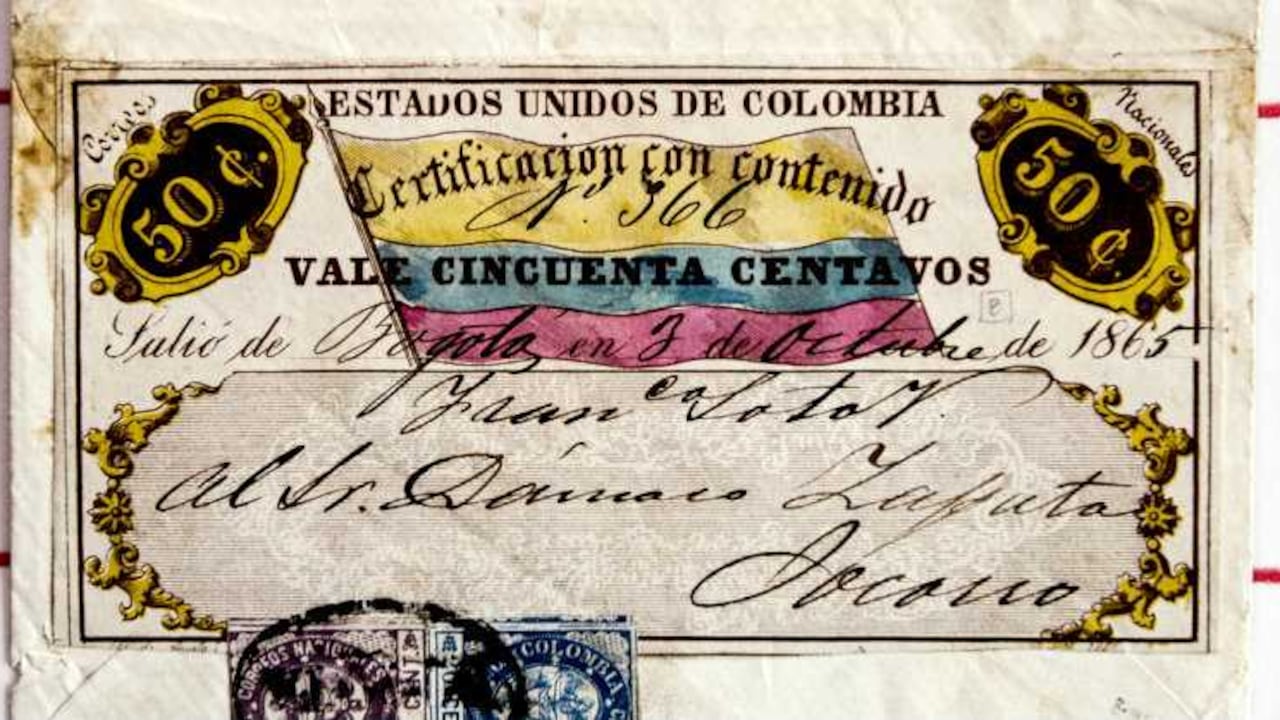 Correos
Nacionales
ESTADOS UNIDOS DE COLOMBIA
50 ¢
50 ¢
Certificacion con contenido
Nº 366
VALE CINCUENTA CENTAVOS
Salió de Bogotá en 3 de Octubre de 1865
Franco Soto V.
Al Sr. Dámaso Zapata
Socorro
CORREOS NACIONALES
CENTA
COLOMBIA